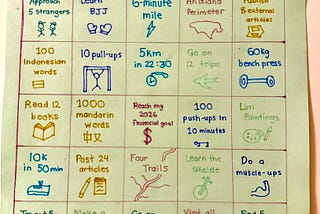 Approach
5 strangers
Learn
BJJ
6-minute
mile
Perimeter
Publish
8 external
articles
100
Indonesian
words
10 pull-ups
5km
in 22:30
Go on
12 trips
60kg
bench press
Read 12
books
1000
mandarin
words
中文
Reach my
2026
financial goal
$
100
push-ups in
10 minutes
Lim
Paintings
10K
in 50 min
Post 24
articles
Four
Trails
Learn the
ukelele
Do a
muscle-ups
Make a
Go on
Visit all
Find 5